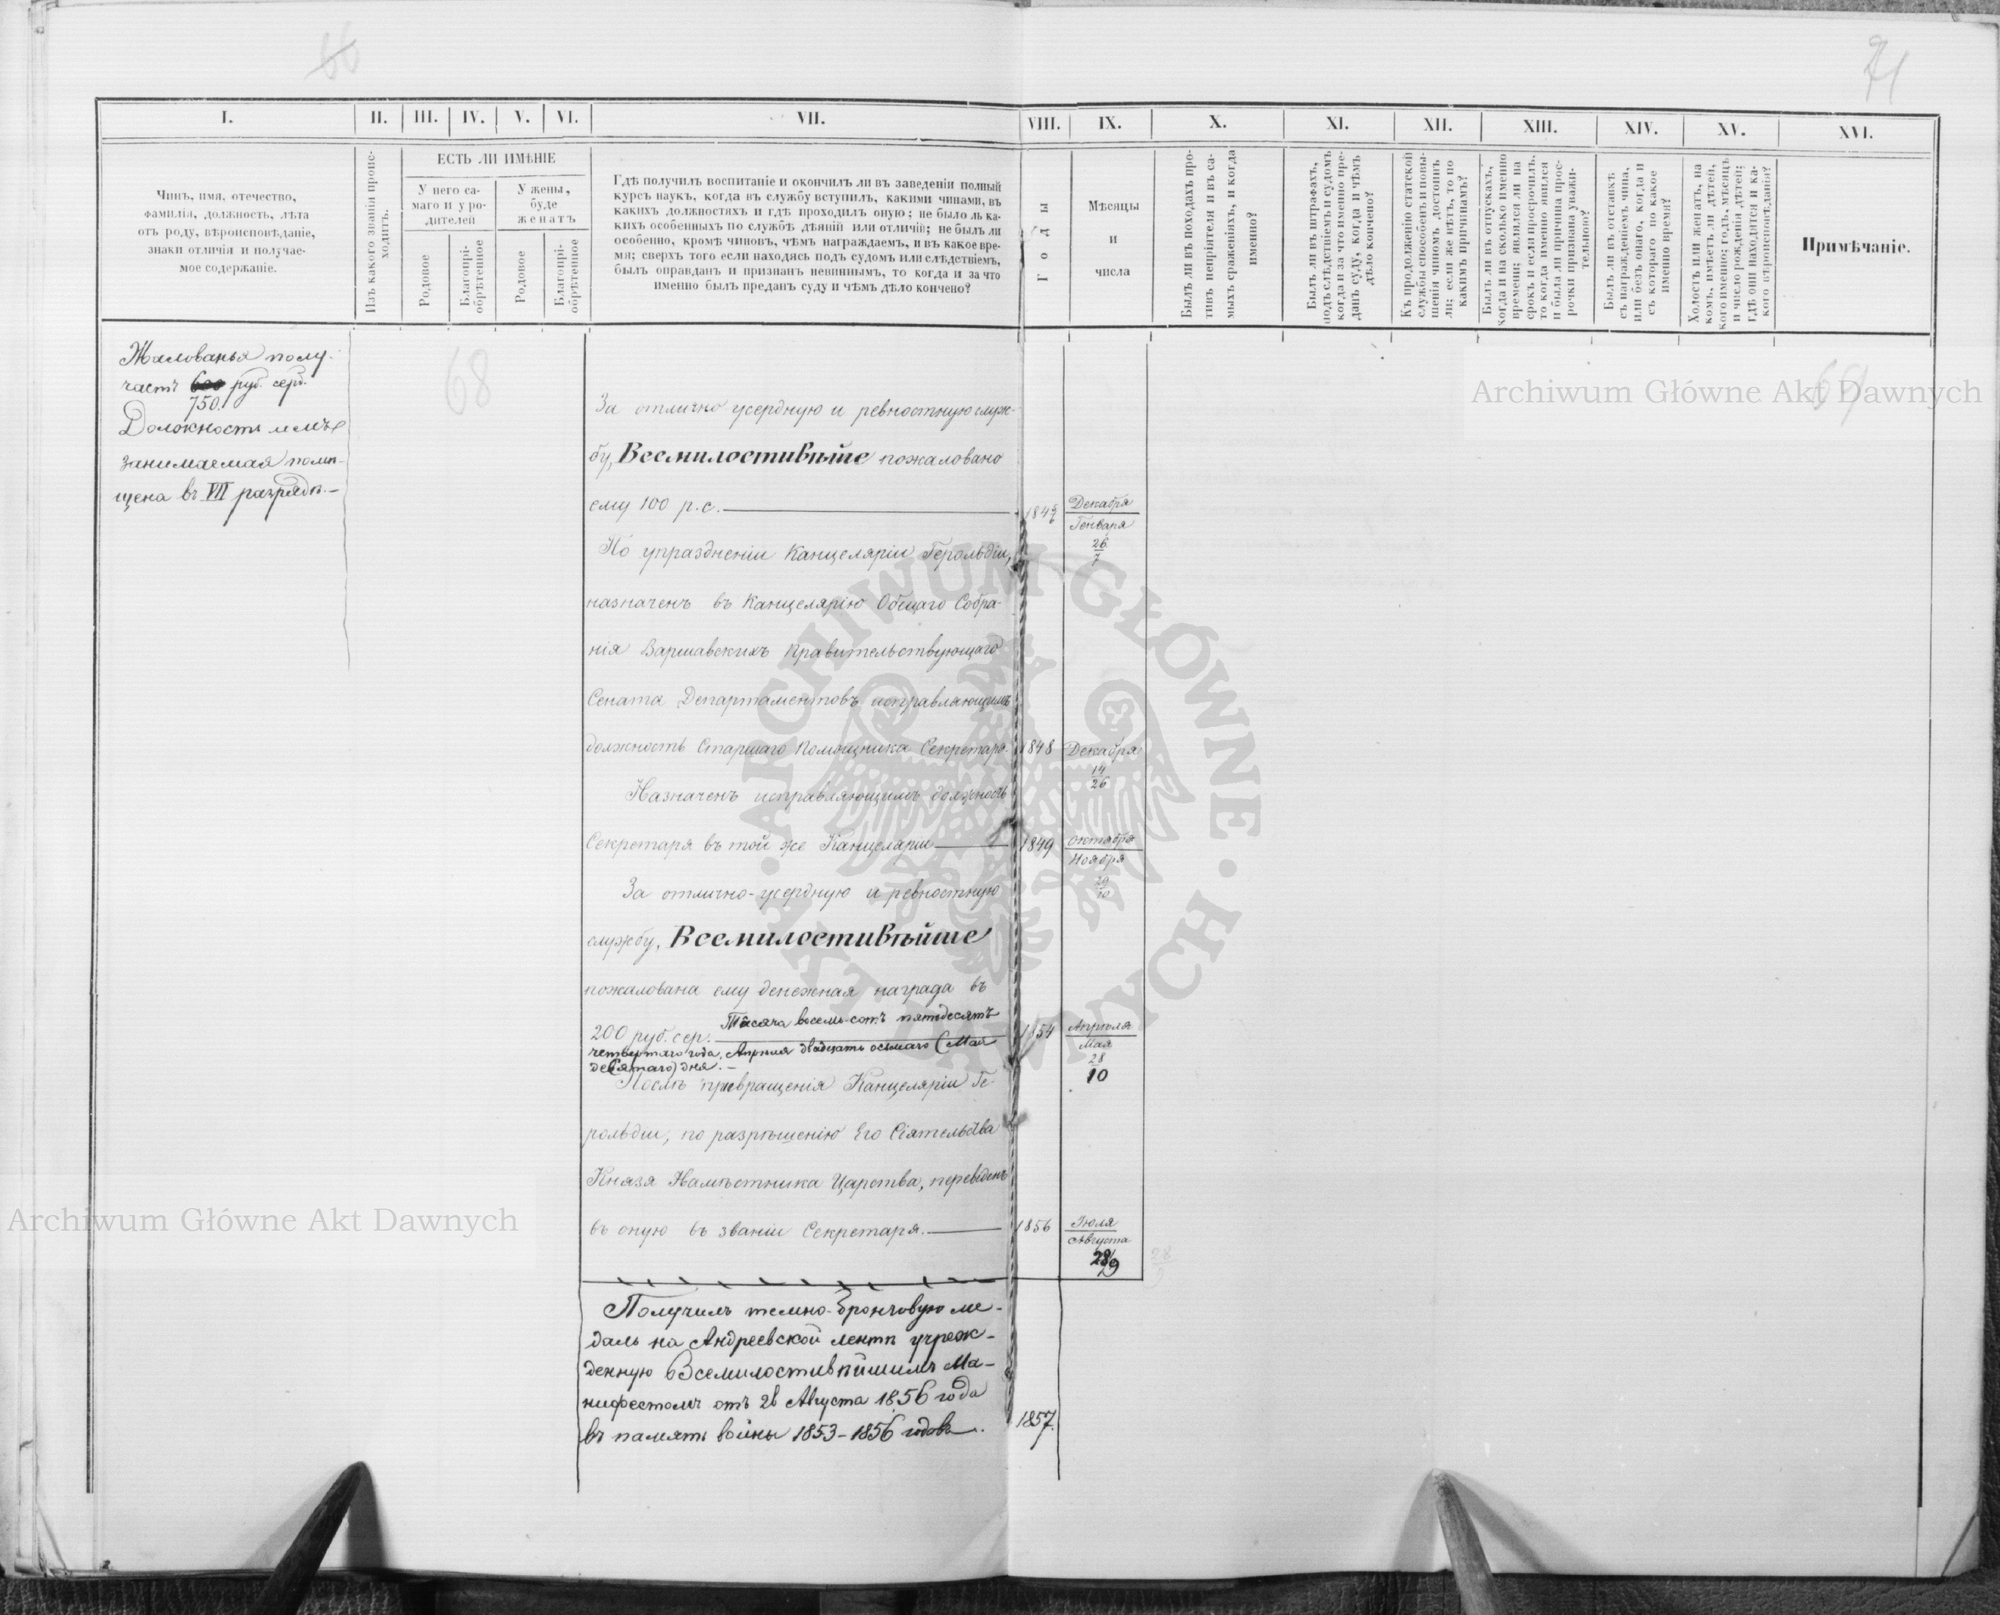 66
71
I.
II.
III.
IV.
V.
VI.
VII.
VIII.
IX.
X.
XI.
XII.
XIII.
XIV.
XV.
XVI.
Чинъ, имя, отечество,
фамилія, должность, лѣта
отъ роду, вѣроисповѣданіе,
знаки отличія и получае-
мое содержаніе.
Изъ какого званія проис-
ходитъ.
ЕСТЬ ЛИ ИМѢНІЕ
У него са-
маго и у ро-
дителей
У жены,
буде
женатъ
Родовое
Благопрі-
обрѣтенное
Родовое
Благопрі-
обрѣтенное
Гдѣ получилъ воспитаніе и окончилъ ли въ заведеніи полный
курсъ наукъ, когда въ службу вступилъ, какими чинами, въ
какихъ должностяхъ и гдѣ проходилъ оную; не было ль ка-
кихъ особенныхъ по службѣ дѣяній или отличій; не былъ ли
особенно, кромѣ чиновъ, чѣмъ награждаемъ, и въ какое вре-
мя; сверхъ того если находясь подъ судомъ или слѣдствіемъ,
былъ оправданъ и признанъ невиннымъ, то когда и за что
именно былъ преданъ суду и чѣмъ дѣло кончено?
Годы
Мѣсяцы
и
числа
Былъ ли въ походахъ про-
тивъ непріятеля и въ са-
мыхъ сраженіяхъ, и когда
именно?
Былъ ли въ штрафахъ,
подъ слѣдствіемъ и судомъ
когда и за что именно пре-
данъ суду, когда и чѣмъ
дѣло кончено?
Къ продолженію статской
службы способенъ и повы-
шенія чиномъ достоинъ
ли; если же нѣтъ, то по
какимъ причинамъ?
Былъ ли въ отпускахъ,
когда и на сколько именно
времени; явился ли на
срокъ и если просрочилъ,
то когда именно явился
и была ли причина прос-
рочки признана уважи-
тельною?
Былъ ли въ отставкѣ
съ награжденіемъ чина,
или безъ онаго, когда и
съ котораго по какое
именно время?
Холостъ или женатъ, на
комъ, имѣетъ ли дѣтей,
кого именно; годъ, мѣсяцъ
и число рожденія дѣтей;
гдѣ они находятся и ка-
кого вѣроисповѣданія?
Примѣчаніе.
Жалованья полу-
чаетъ 600 руб. серб.
750.
Должность имъ
занимаемая помѣ-
щена въ VII разрядѣ.—
68
69
Archiwum Główne Akt Dawnych
За отлично усердную и ревностную служ-
бу, Всемилостивѣйше пожаловано
ему 100 р. с.
Декабря
Генваря
26
7
По упраздненіи Канцеляріи Герольдіи,
назначенъ въ Канцелярію Общаго Собра-
нія Варшавскихъ Правительствующаго
Сената Департаментовъ исправляющимъ
должность Старшаго Помощника Секретаря. 1848 Декабря
14
26
Назначенъ исправляющимъ должность
Секретаря въ той же Канцеляріи 1849 Октября
Ноября
29
10
За отлично-усердную и ревностную
службу, Всемилостивѣйше
пожалована ему денежная награда въ
Тысяча восемь-сотъ пятьдесятъ
200 руб. сер. 1854 Апрѣля
четвертаго года, Апрѣля двадцать осьмаго (Мая
Мая
28
10
десятаго) дня.—
Послѣ превращенія Канцеляріи Ге-
рольдіи, по разрѣшенію Его Сіятельства
Князя Намѣстника Царства, переведенъ
въ оную въ званіи Секретаря. 1856 Іюля
Августа
28
9
Archiwum Główne Akt Dawnych
Получилъ темно-бронзовую ме-
даль на Андреевской лентѣ учреж-
денную Всемилостивѣйшимъ Ма-
нифестомъ отъ 26 Августа 1856 года
въ память войны 1853–1856 годовъ. 1857.
ARCHIWUM GŁÓWNE AKT DAWNYCH